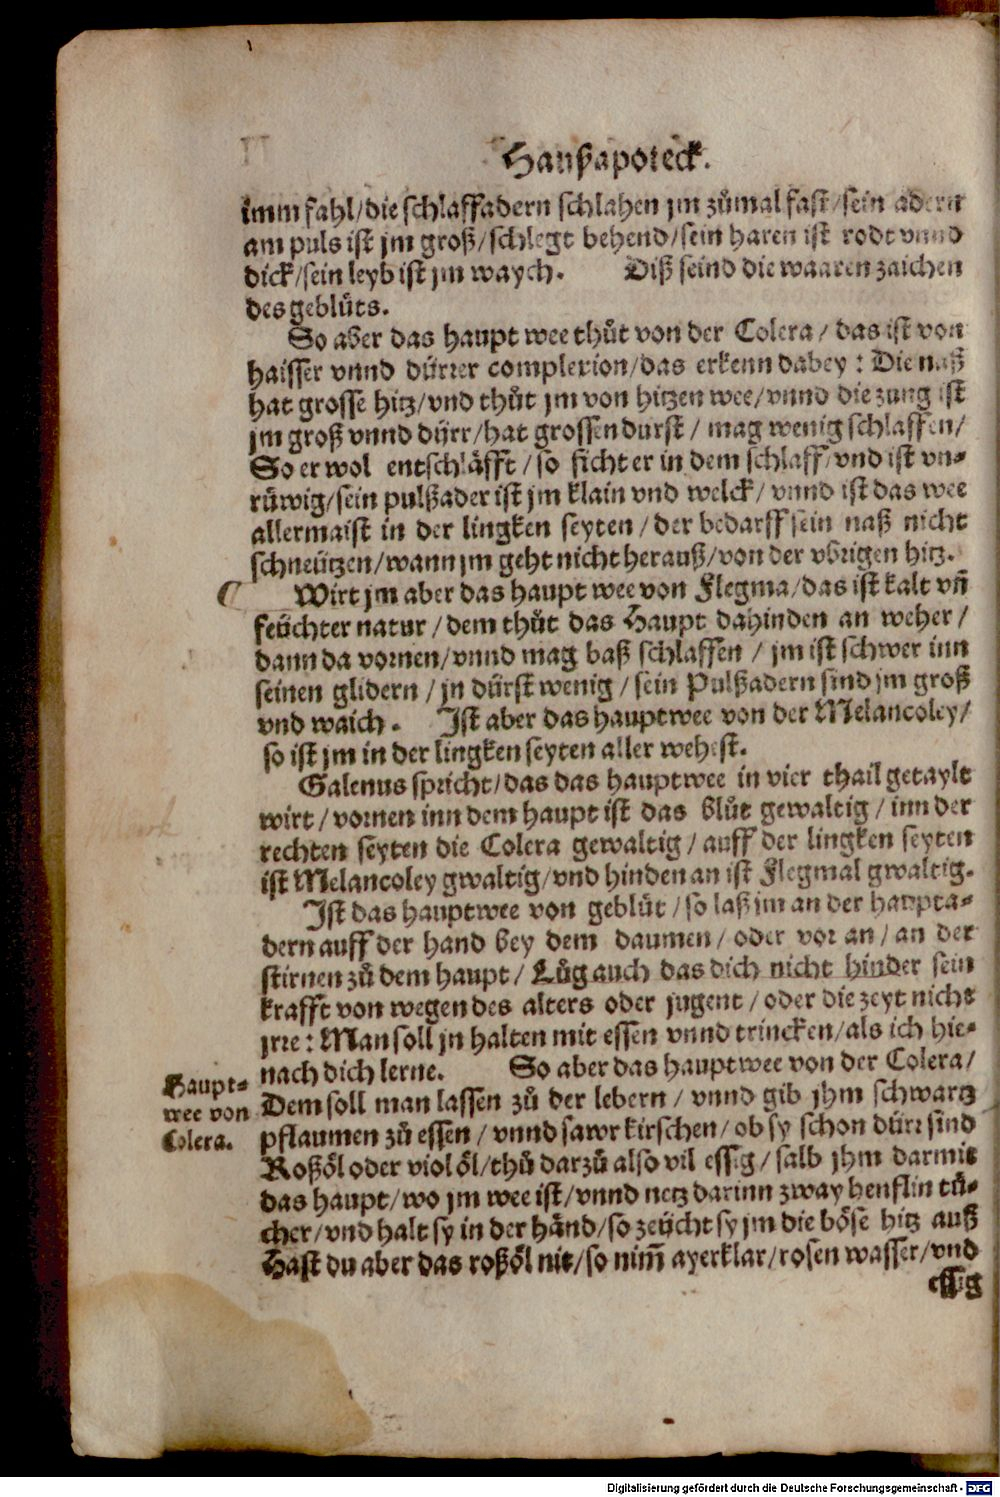 Haußapoteck.
imm fahl/die schlaffadern schlahen jm zůmal fast/sein adern
am puls ist jm groß/schlegt behend/sein haren ist rodt vnnd
dick/sein leyb ist jm waych. Diß seind die waaren zaichen
des geblůts.
So aber das haupt wee thůt von der Colera/das ist von
haisser vnnd dürrer complexion/das erkenn dabey: Die naß
hat grosse hitz/vnd thůt jm von hitzen wee/vnnd die zung ist
jm groß vnnd dürr/hat grossen durst/mag wenig schlaffen/
So er wol entschläfft/so ficht er in dem schlaff/vnd ist vn-
rüwig/sein pulßader ist jm klain vnd welck/vnnd ist das wee
allermaist in der lingken seyten/der bedarff sein naß nicht
schneützen/wann jm geht nicht herauß/von der vbrigen hitz.
Wirt jm aber das haupt wee von Flegma/das ist kalt vñ
feüchter natur/dem thůt das Haupt dahinden an weher/
dann da vornen/vnnd mag baß schlaffen/jm ist schwer inn
seinen glidern/jn dürst wenig/sein Pulßadern sind jm groß
vnd waich. Ist aber das hauptwee von der Melancoley/
so ist jm in der lingken seyten aller wehest.
Galenus spricht/das das hauptwee in vier thail getaylt
wirt/vornen inn dem haupt ist das blůt gewaltig/inn der
rechten seyten die Colera gewaltig/auff der lingken seyten
ist Melancoley gwaltig/vnd hinden an ist Flegmal gwaltig.
Ist das hauptwee von geblüt/so laß jm an der haupta-
dern auff der hand bey dem daumen/oder vor an/an der
stirnen zů dem haupt/Lůg auch das dich nicht hinder sein
krafft von wegen des alters oder jugent/oder die zeyt nicht
jrre: Man soll jn halten mit essen vnnd trincken/als ich hie-
nach dich lerne. So aber das hauptwee von der Colera/
Haupt-
wee von
Colera.
Dem soll man lassen zů der lebern/vnnd gib jhm schwartz
pflaumen zů essen/vnnd sawr kirschen/ob sy schon dürr sind
Roßöl oder violöl/thů darzů also vil essig/salb jhm darmit
das haupt/wo jm wee ist/vnnd netz darinn zway henflin tů-
cher/vnd halt sy in der händ/so zeücht sy jm die böse hitz auß
Hast du aber das roßöl nit/so nim̃ ayerklar/rosen wasser/vnd
essig
Digitalisierung gefördert durch die Deutsche Forschungsgemeinschaft - DFG